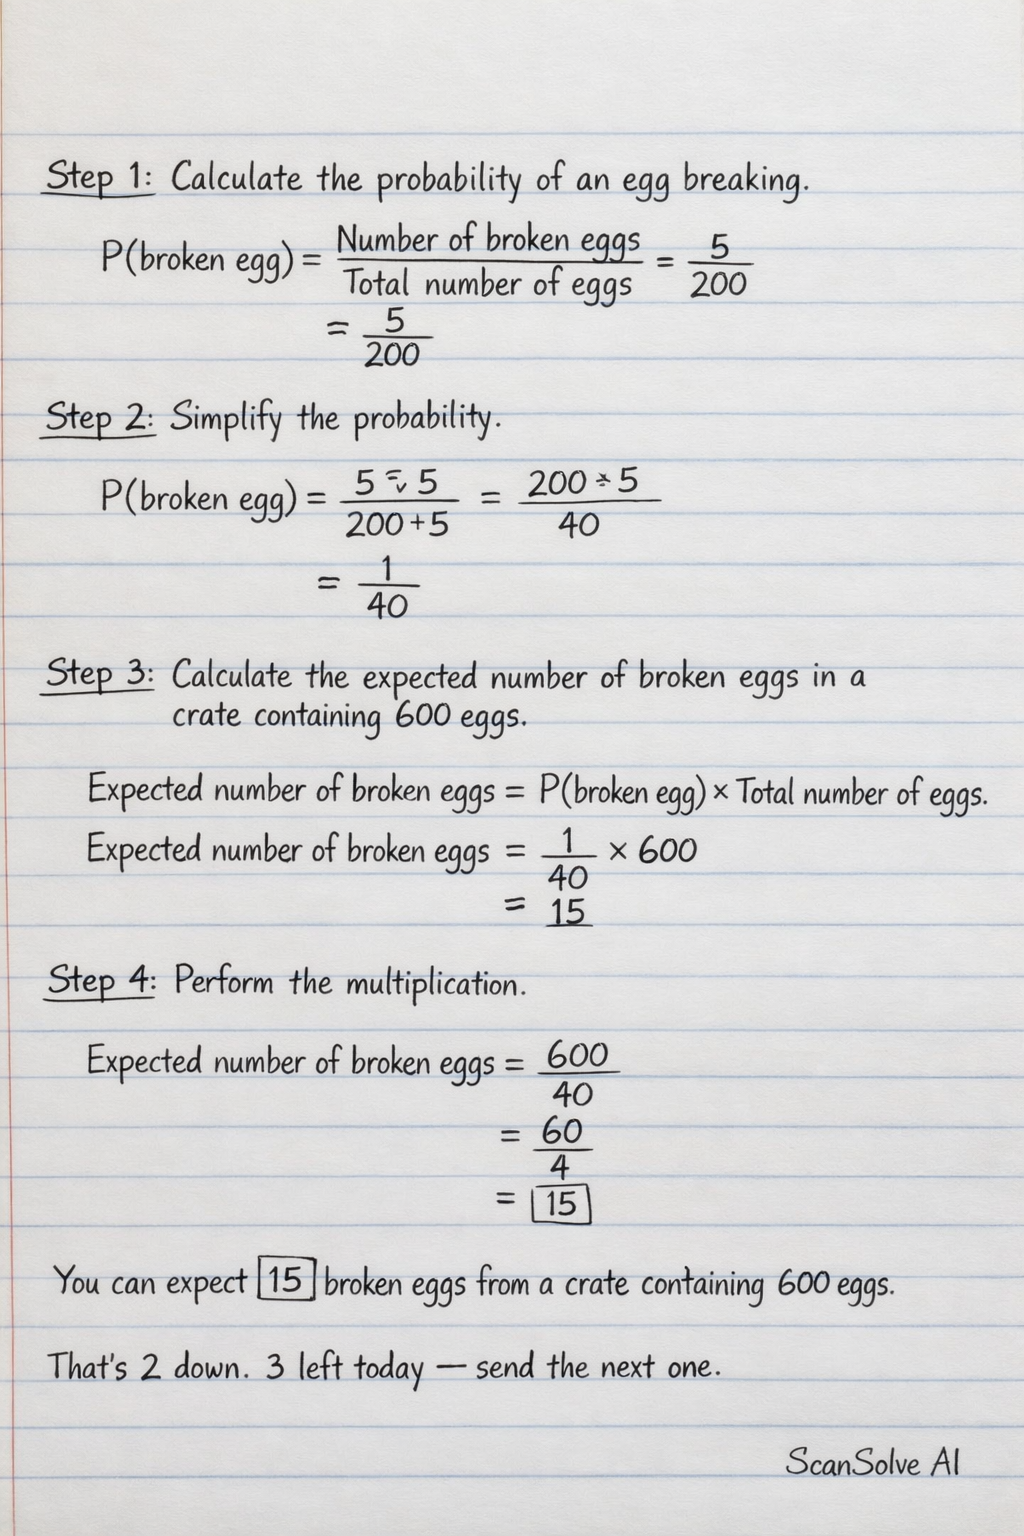 Step 1: Calculate the probability of an egg breaking.
P(broken egg) = Number of broken eggs / Total number of eggs = 5/200
= 5/200
Step 2: Simplify the probability.
P(broken egg) = 5 5 / 200+5 = 200 5 / 40
= 1/40
Step 3: Calculate the expected number of broken eggs in a
crate containing 600 eggs.
Expected number of broken eggs = P(broken egg) × Total number of eggs.
Expected number of broken eggs = 1/40 × 600
= 15
Step 4: Perform the multiplication.
Expected number of broken eggs = 600/40
= 60/4
= 15
You can expect 15 broken eggs from a crate containing 600 eggs.
That's 2 down. 3 left today — send the next one.
ScanSolve AI